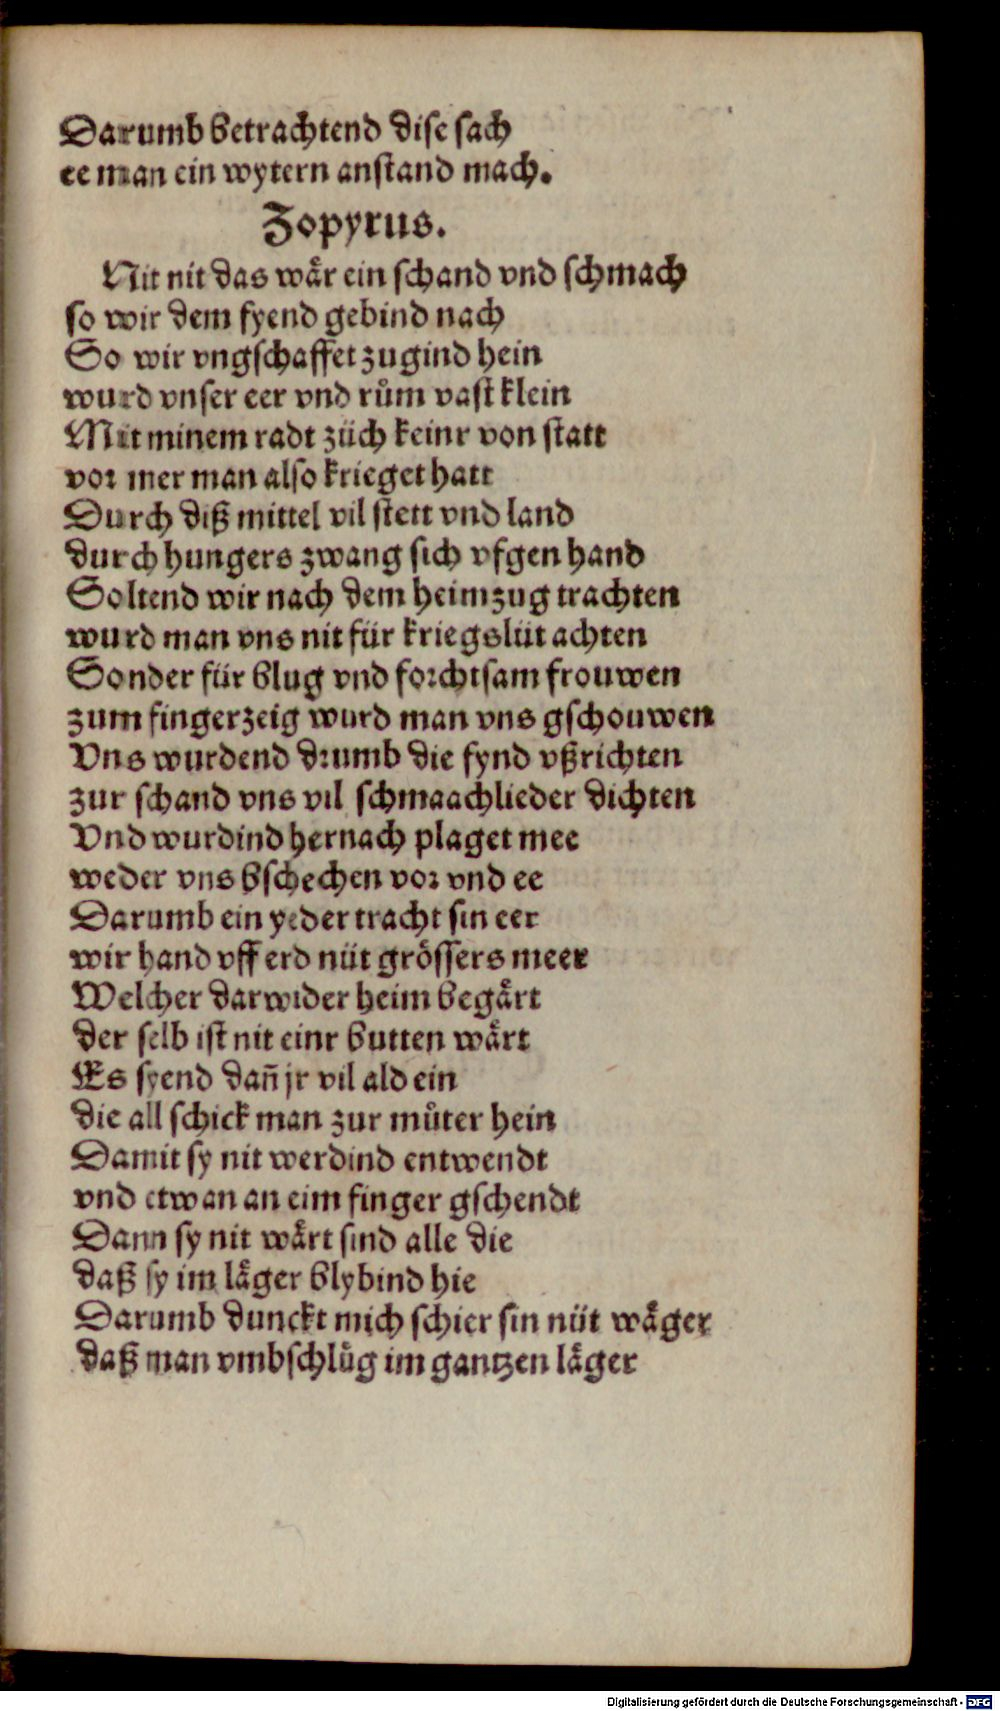 Darumb betrachtend dise sach
ee man ein wytern anstand mach.
Zopyrus.
Nit nit das wår ein schand vnd schmach
so wir dem fyend gebind nach
So wir vngschaffet zugind hein
wurd vnser eer vnd rům vast klein
Mit minem radt züch keinr von statt
vor mer man also krieget hatt
Durch diß mittel vil stett vnd land
durch hungers zwang sich vfgen hand
Soltend wir nach dem heimzug trachten
wurd man vns nit für kriegslüt achten
Sonder für blug vnd forchtsam frouwen
zum fingerzeig wurd man vns gschouwen
Vns wurdend drumb die fynd vßrichten
zur schand vns vil schmaachlieder dichten
Vnd wurdind hernach plaget mee
weder vns bschechen vor vnd ee
Darumb ein yeder tracht sin eer
wir hand vff erd nüt grössers meer
Welcher darwider heim begårt
der selb ist nit einr butten wårt
Es syend dañ jr vil ald ein
die all schick man zur můter hein
Damit sy nit werdind entwendt
vnd etwan an eim finger gschendt
Dann sy nit wårt sind alle die
daß sy im låger blybind hie
Darumb dunckt mich schier sin nüt wåger
daß man vmbschlůg im gantzen låger
Digitalisierung gefördert durch die Deutsche Forschungsgemeinschaft - DFG